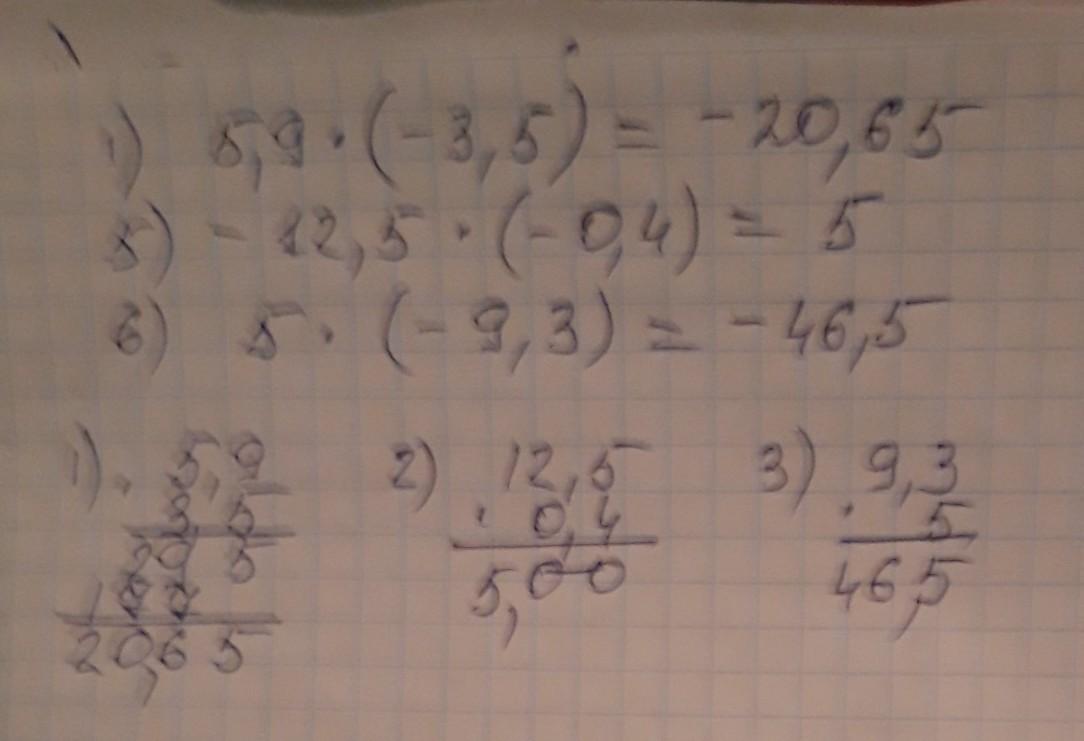 1) 5,9 · (-3,5) = -20,65
5) -12,5 · (-0,4) = 5
6) 5 · (-9,3) = -46,5
1) · 5,9 2) 12,5 3) 9,3
3,5 · 0,4 · 5
5 5,00 46,5
20,65